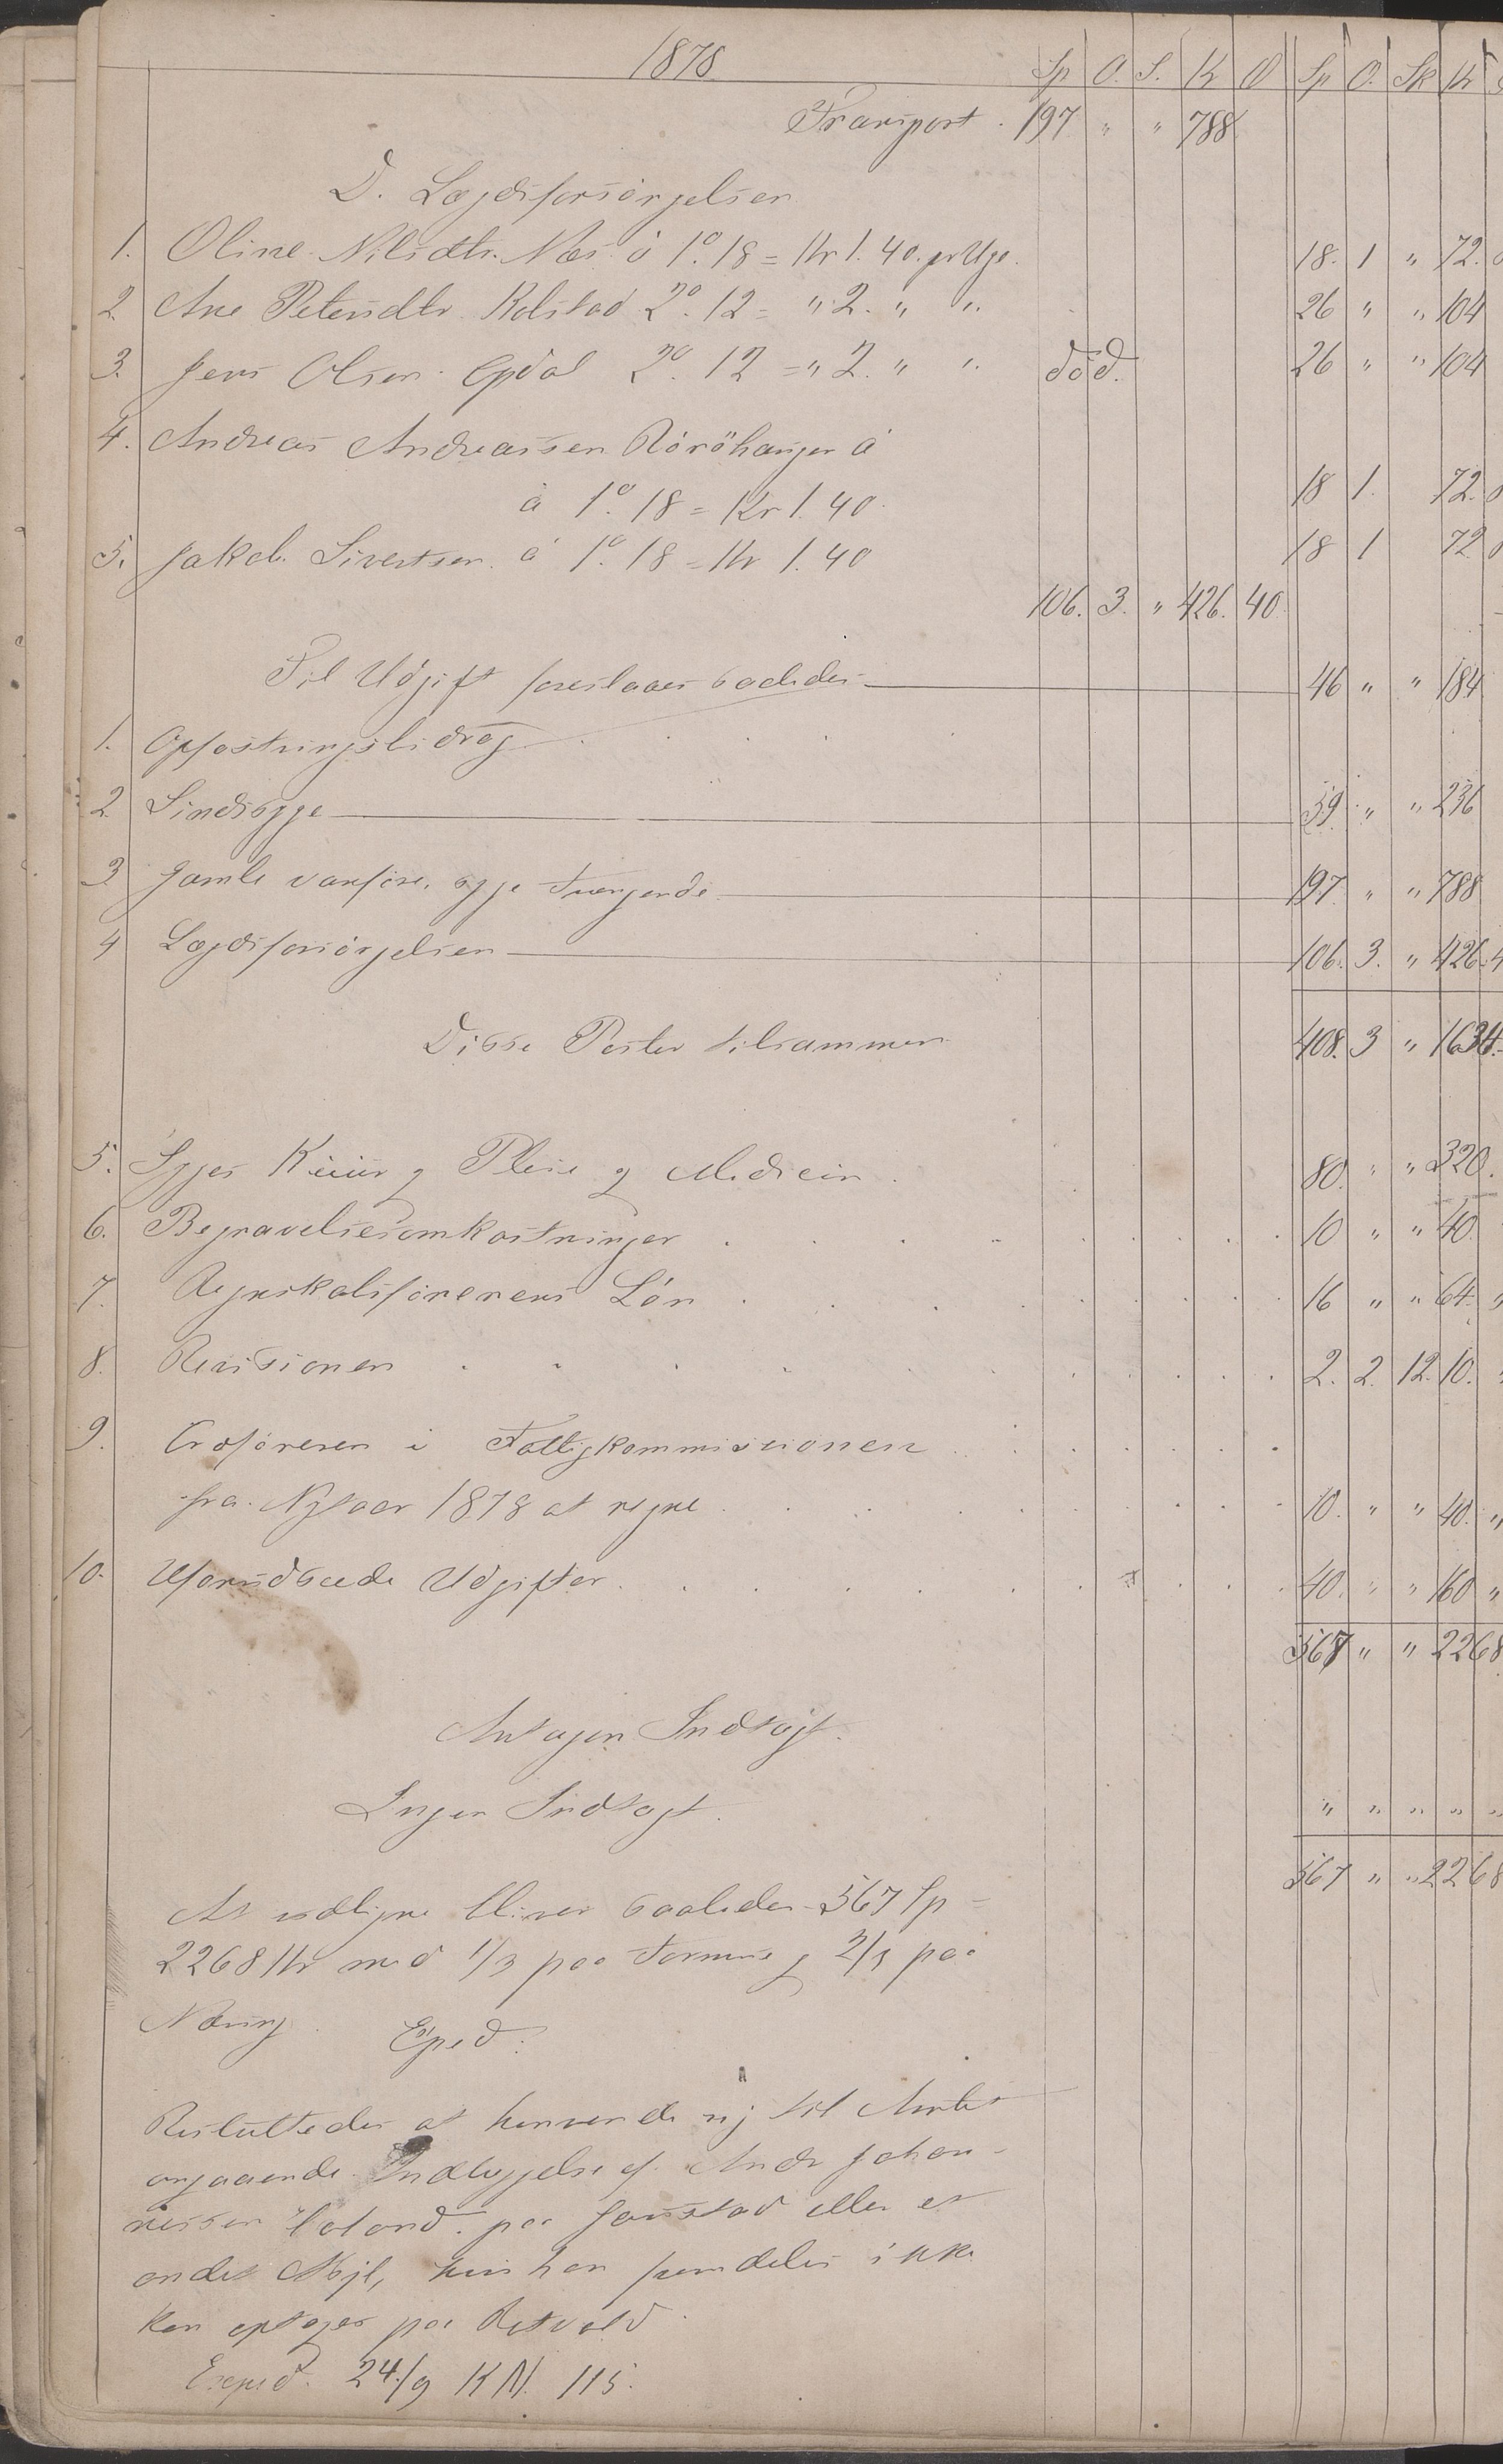 1878
Sp O. S. Kr Ø Sp O. Sk Kr
Transport . 197 " " 788
D. Lægdsforsørgelsen
1. Oline Nilsdtr. Næs à 1º. 18 = Kr 1. 40. pr Uge. 18. 1 " 72.
2. Ane Petersdtr. Kolstad 2º. 12 = " 2. " " 26 " " 104
3. Jens Olsen Opdal 2º. 12 = " 2. " " død. 26 " " 104
4. Andreas Andreassen à
à 1º. 18 = Kr 1. 40. 18 1. 72.
5. Jakob Sivertsen à 1º. 18 = Kr 1. 40 18 1 72
106. 3. " 426. 40.
Til Udgift foreslaaes saaledes 46 " " 184
1. Opfostringsbidrag
2. Sindssyge 59. " " 236
3. Gamle vanføre, syge trængende 197. " " 788
4 Lægdsforsørgelsen 106. 3. " 426. 4
Disse Poster tilsammen 408. 3 " 1634.
5. Syges Kuur og Pleie og Medicin 80. " " 320.
6. Begravelsesomkostninger 10 " " 40.
7. Regnskabsførerens Løn 16 " " 64.
8. Revisionen 2. 2. 12. 10.
9. Ordføreren i Fattigkommissionen
fra Nytaar 1878 at regne 10. " " 40. "
10. Uforudseede Udgifter 40. " " 160 "
567 " " 2268
Antagen Indtægt.
Ingen Indtægt. " " " " "
567 " " 2268
At udligne bliver saaledes 567 Sp =
2268 Kr med 1/3 paa Formue og 2/3 paa
Næring. Exped:
Besluttedes at henvende sig til Amtet
angaaende Indlæggelse af Andr Johan-
nessen paa Gaustad eller et
andet Asyl, hvis han fremdeles ikke
kan optages paa Rotvold
Exped. 24/9 K N. 115.